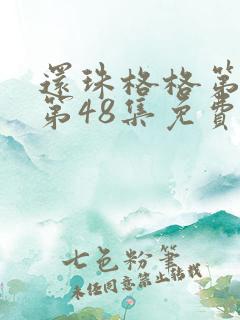 還珠格格第
第48集免費
七色粉筆
未經同意禁止轉載